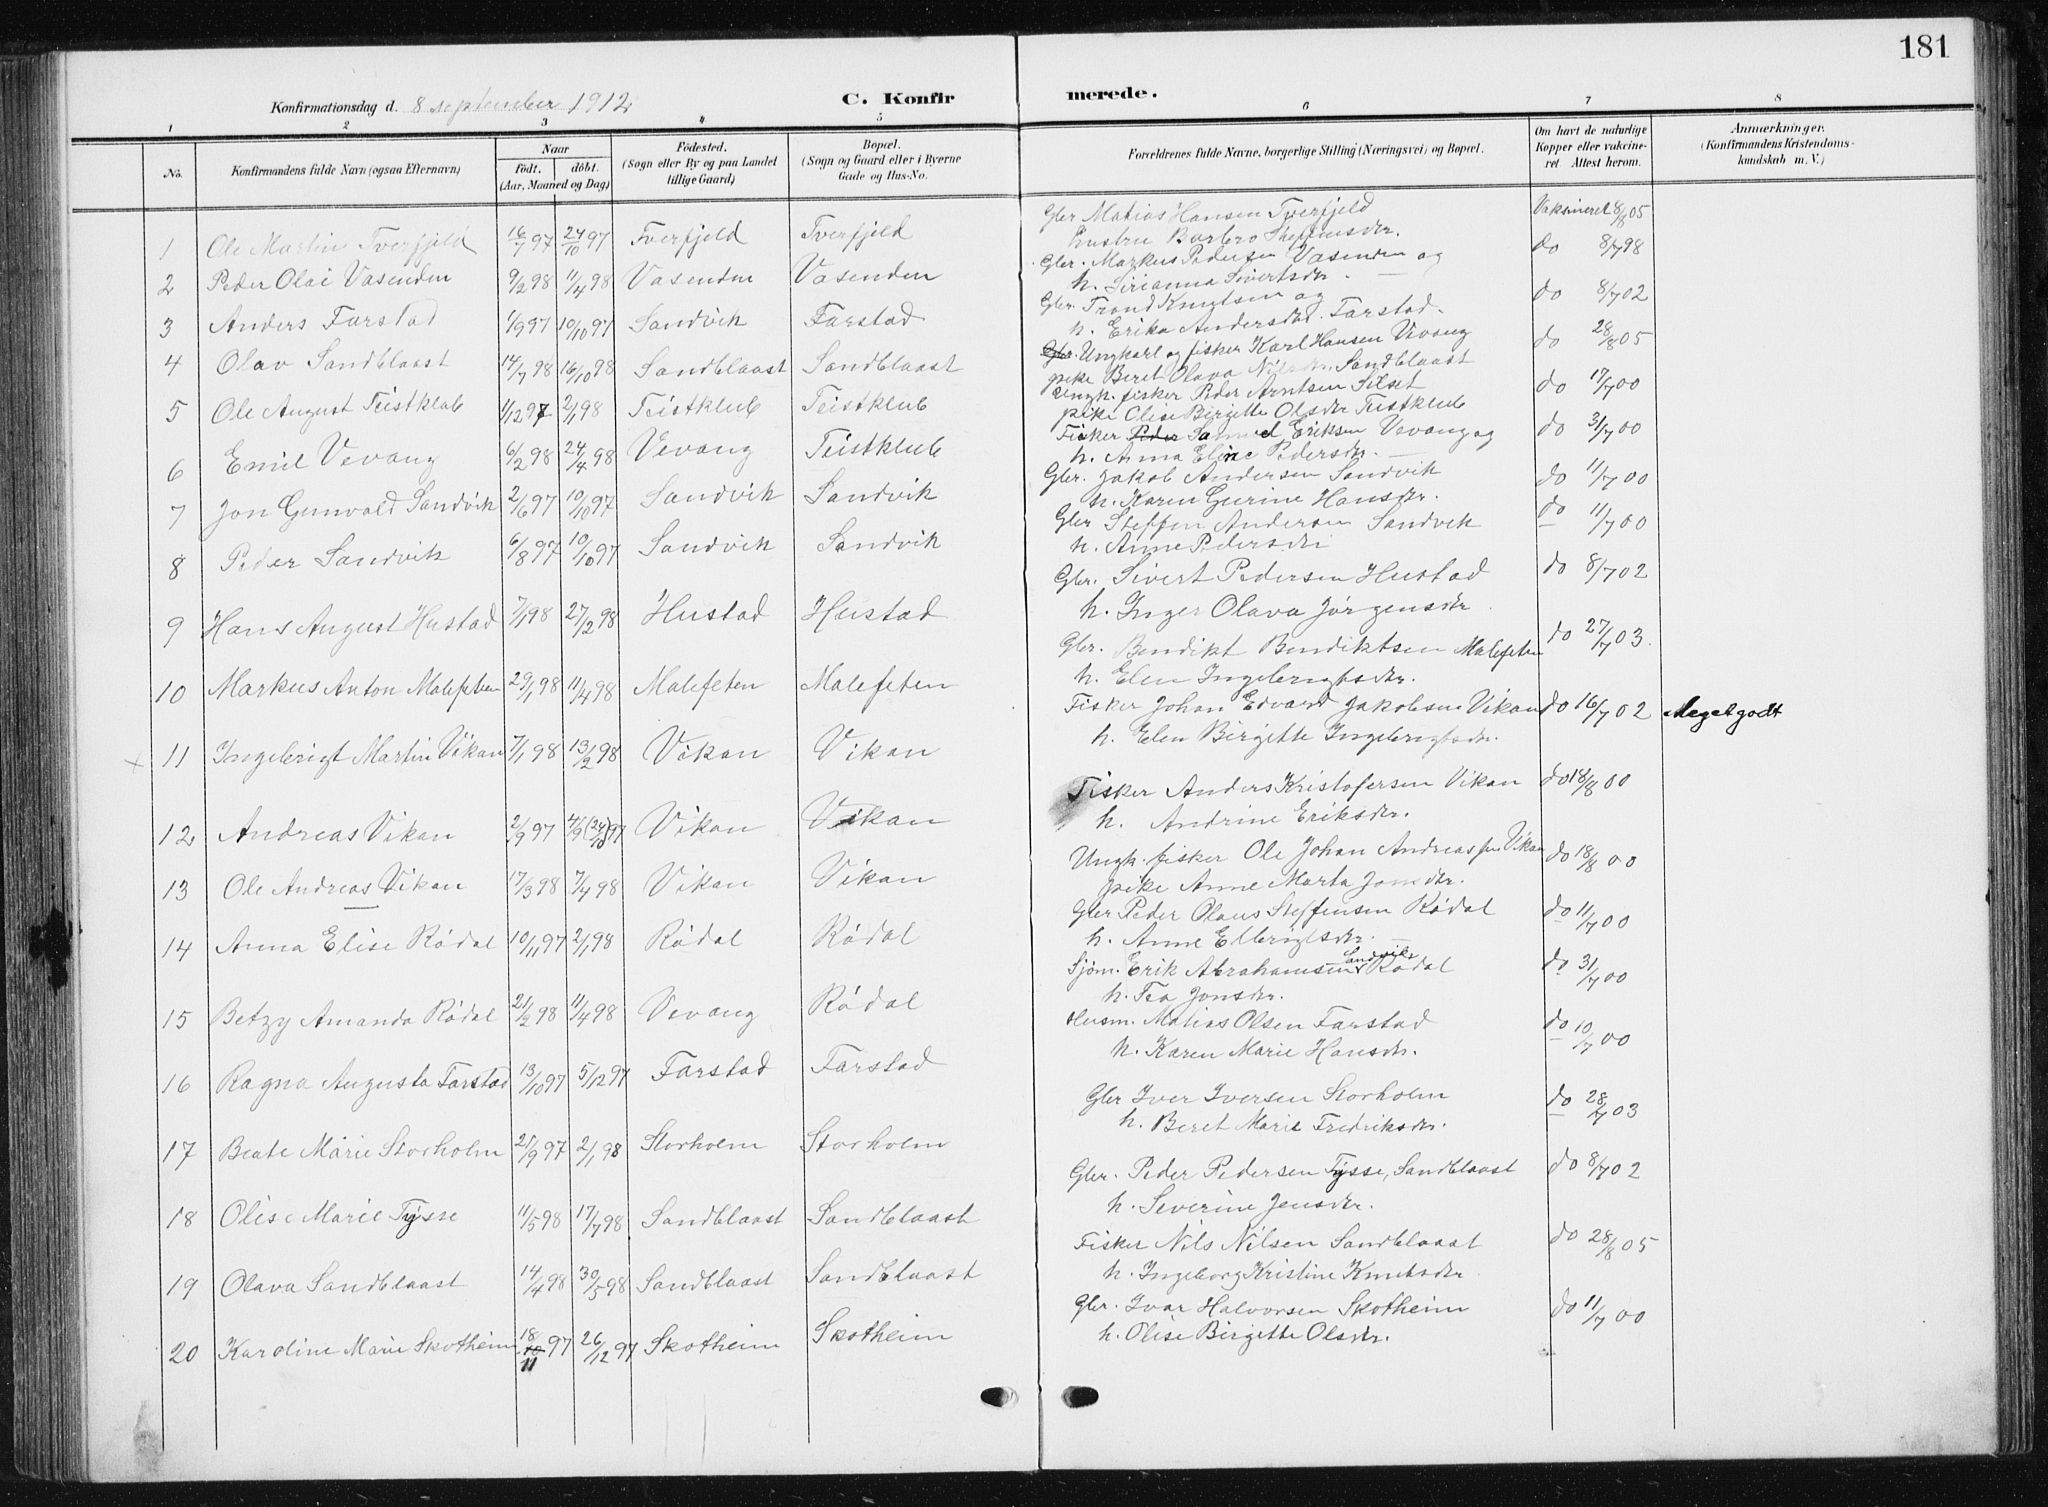 181
Konfirmationsdag d. 8 september 1912.
C. Konfirmerede.
1 2 3 4 5 6 7 8
No.
Konfirmandens fulde Navn (ogsaa Efternavn)
Naar
födt. döbt.
(Aar, Maaned og Dag)
Födested.
(Sogn eller By og paa Landet
tillige Gaard)
Bopæl.
(Sogn og Gaard eller i Byerne
Gade og Hus-No.
Forældrenes fulde Navne, borgerlige Stilling (Næringsvei) og Bopæl.
Om havt de naturlige
Kopper eller vakcine-
ret. Attest herom.
Anmærkninger.
(Konfirmandens Kristendoms-
kundskab m. V.)
1 Ole Martin Tverfjeld 16/7 97 24/10 97 Tverfjeld Tverfjeld Gbr Matias Hansen Tverfjeld Vaksineret 8/8 05
hustru Barbro Steffensdr.
2 Peder Olai Vasenden 9/2 98 11/4 98 Vasenden Vasenden Gbr. Markus Pedersen Vasenden og do 8/7 98
h. Sirianna Sivertsdr
3 Anders Farstad 1/9 97 10/10 97 Sandvik Farstad Gbr. Trond Knutsen og do 8/7 02
h. Erika Andersdr. Farstad.
4 Olav Sandblaast 14/7 98 16/10 98 Sandblaast Sandblaast Gbr. Ungkarl og fisker Karl Hansen Vevang do 28/8 05
pike Beret Olava Sandblaast
5 Ole August Teistklub 1/12 97 2/1 98 Teistklub Teistklub Ungk. fisker Peder Arntsen Silset do 17/7 00
pike Olise Birgitte Olsdr Teistklub
6 Emil Vevang 6/2 98 24/4 98 Vevang Teistklub Fisker Peder Samuel Eriksen Vevang og do 31/7 00
h. Anna Eline Pedersdr.
7 Jon Gunvald Sandvik 2/6 97 10/10 97 Sandvik Sandvik Gbr. Jakob Andersen Sandvik do 11/7 00
h. Karen Gurine Hansdr.
8 Peder Sandvik 6/8 97 10/10 97 Sandvik Sandvik Gbr Steffen Andersen Sandvik do 11/7 00
h. Anne Pedersdr
9 Hans August Hustad 7/1 98 27/2 98 Hustad Hustad Gbr. Sivert Pedersen Hustad do 8/7 02
h. Inger Olava Jørgensdr
10 Markus Anton Malefeten 29/1 98 11/4 98 Malefeten Malefeten Gbr. Bendikt Bendiktsen Malefeten do 27/7 03.
h. Elen Ingebrigtsdr.
x 11 Ingebrigt Martin Vikan 7/1 98 13/2 98 Vikan Vikan Fisker Johan Edvard Jakobsen Vikan do 16/7 02 Meget godt
h. Elen Birgitte Ingebrigtsdr.
12 Andreas Vikan 2/9 97 4/9 (24/10) 97 Vikan Vikan Fisker Anders Kristofersen Vikan do 18/8 00
h. Andrine Eriksdr.
13 Ole Andreas Vikan 17/3 98 7/4 98 Vikan Vikan Ungk. fisker Ole Johan Andreassen Vikan do 18/8 00
pike Anne Marta Jonsdr.
14 Anna Elise Rødal 10/11 97 2/1 98 Rødal Rødal Gbr Peder Olaus Steffensen Rødal do 11/7 00
h. Anne Ellingsdr.
15 Betzy Amanda Rødal 21/2 98 11/4 98 Vevang Rødal Sjøm. Erik Abrahamsen Sandvik Rødal do 31/7 00
h. Tea Jonsdr.
16 Ragna Augusta Farstad 13/10 97 5/12 97 Farstad Farstad Husm. Matias Olsen Farstad do 10/7 00
h. Karen Marie Hansdr.
17 Beate Marie Storholm 21/9 97 2/1 98 Storholm Storholm Gbr Iver Iversen Storholm do 28/7 03
h. Beret Marie Fredriksdr.
18 Olise Marie Tysse 11/5 98 17/7 98 Sandblaast Sandblaast Gbr. Peder Pedersen Tysse, Sandblaast do 8/7 02
h. Severine Jensdr.
19 Olava Sandblaast 14/4 98 30/5 98 Sandblaast Sandblaast Fisker Nils Nilsen Sandblaast do 28/8 05
h. Ingeborg Kristine Knutsdr
20 Karoline Marie Skotheim 18/11 97 26/12 97 Skotheim Skotheim Gbr. Ivar Halvorsen Skotheim do 11/7 00
h. Olise Birgitte Olsdr.